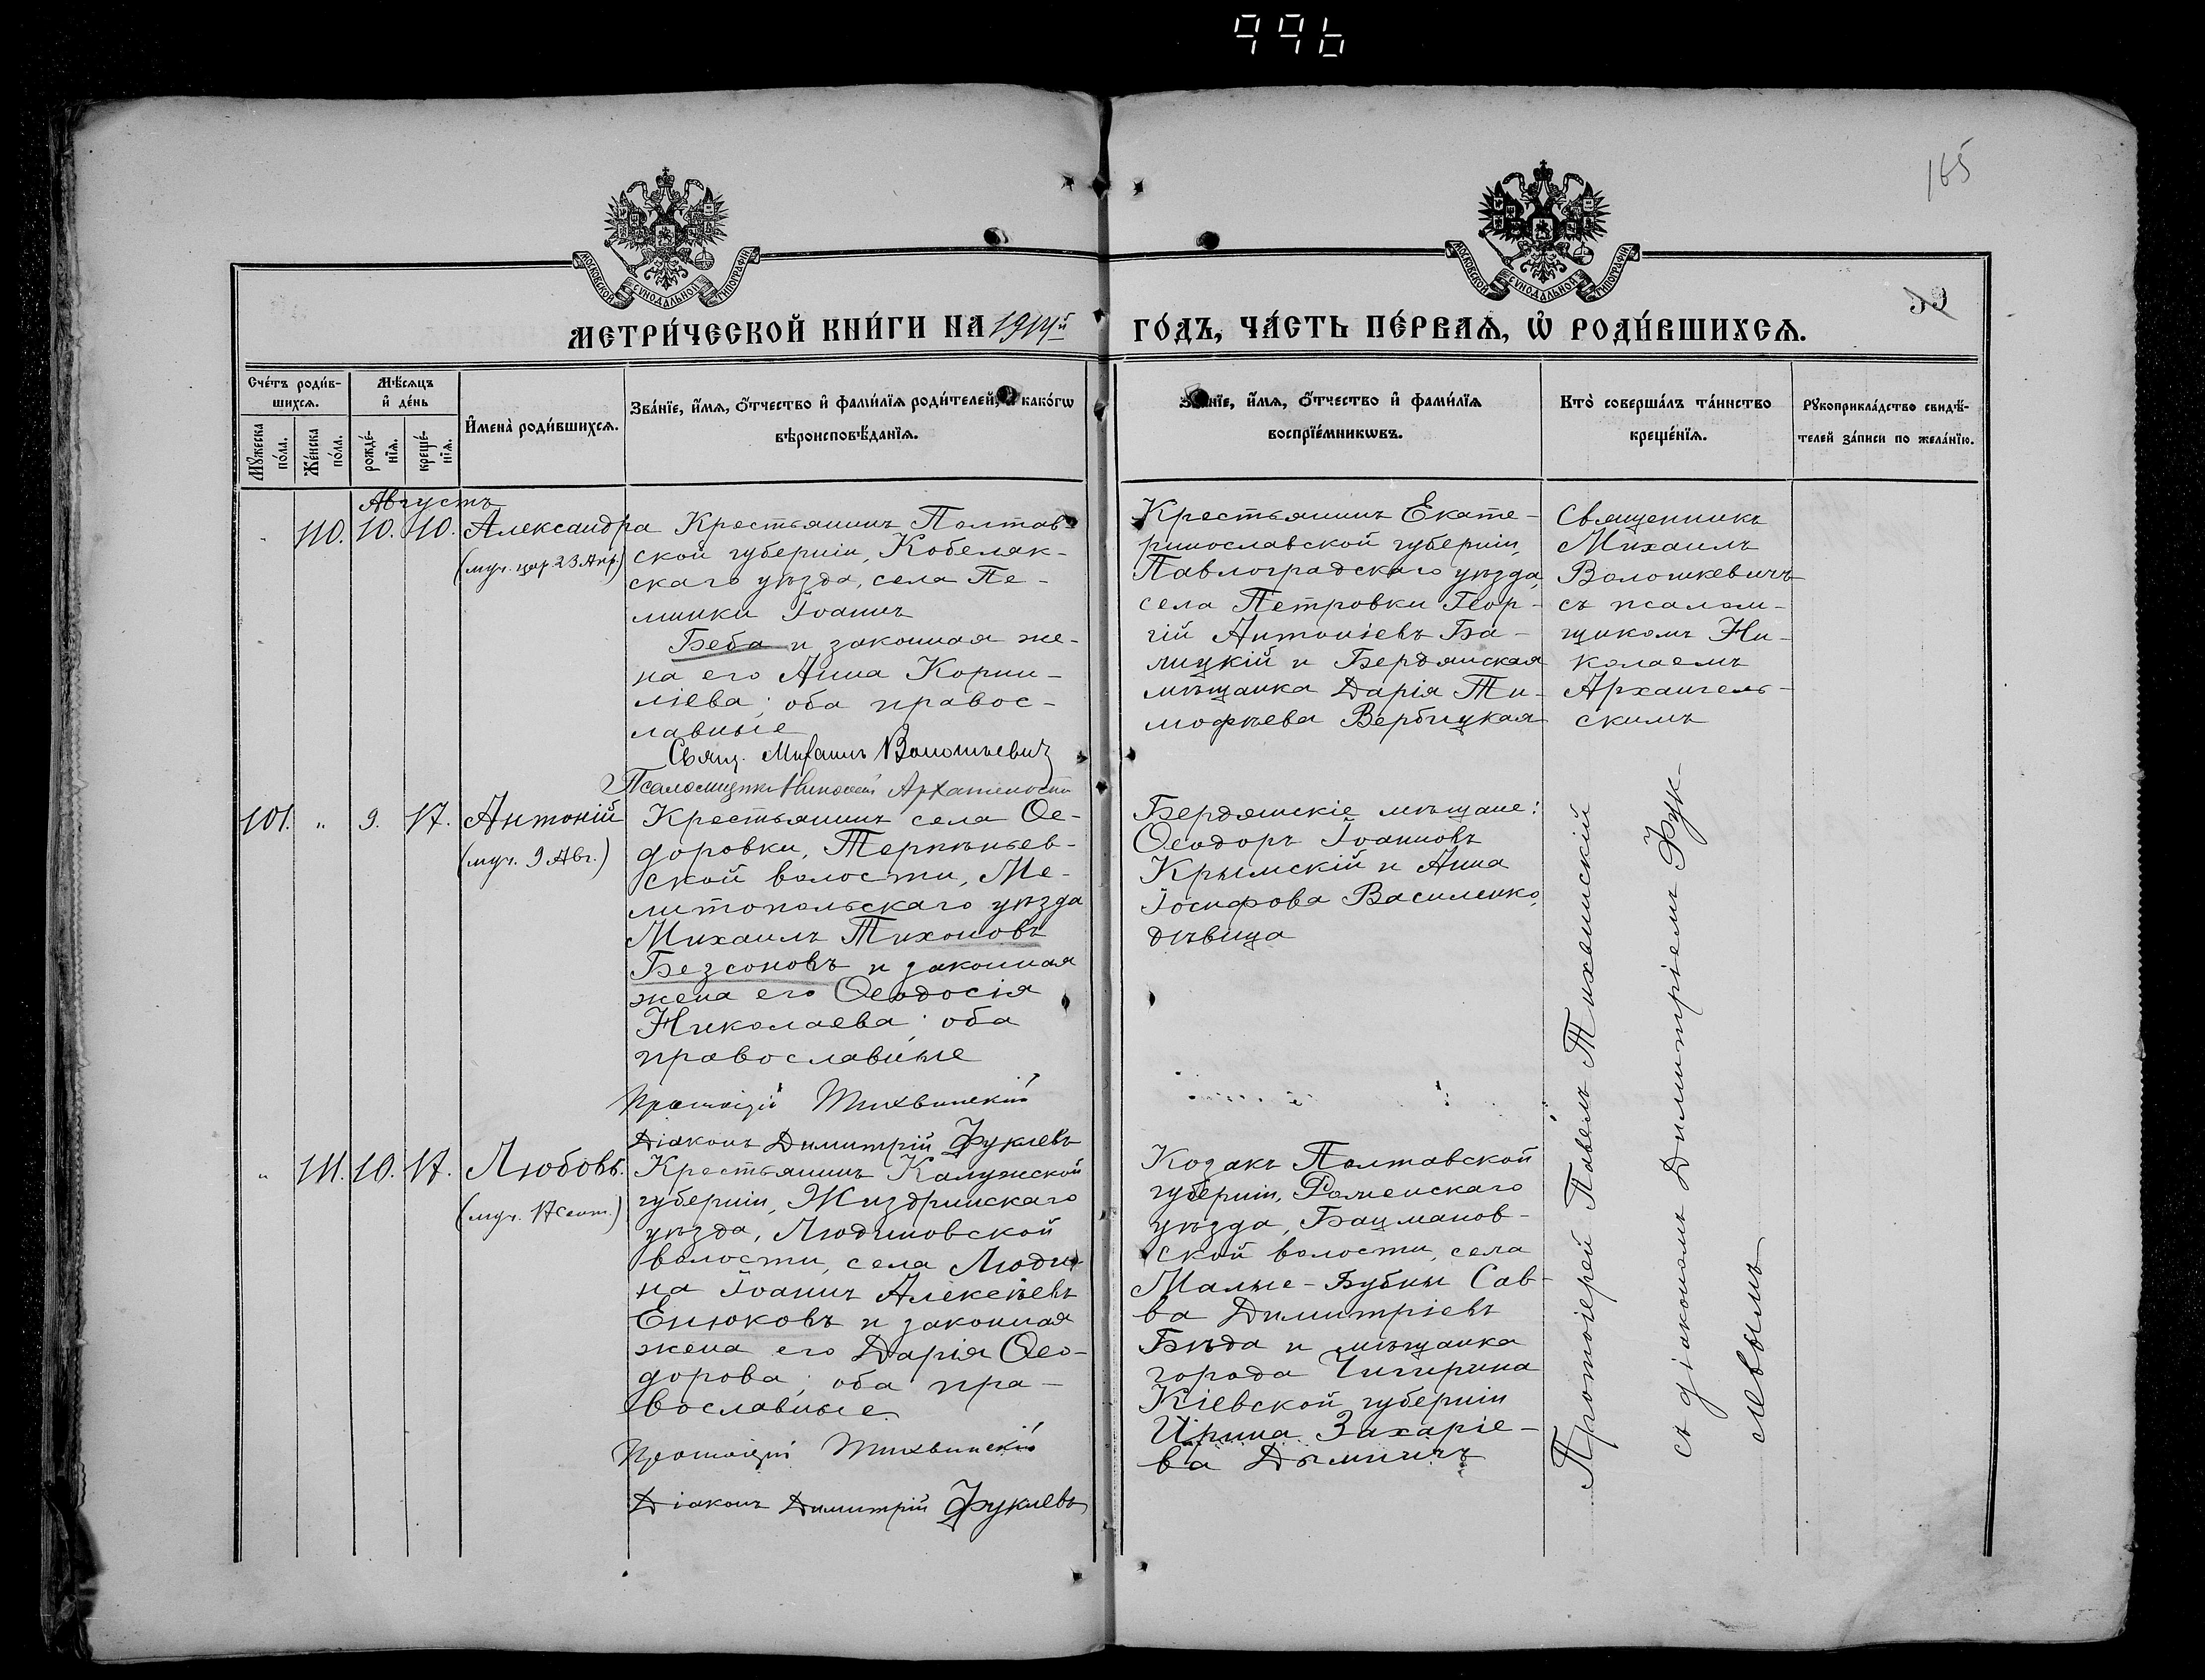 996
165
59
МОСКОВСКОЙ СѴНОДАЛЬНОЙ ТИПОГРАФІИ
МОСКОВСКОЙ СѴНОДАЛЬНОЙ ТИПОГРАФІИ
МЕТРИ́ЧЕСКОЙ КНИ́ГИ НА 1914й ГО́ДЪ, ЧА́СТЬ ПЕ́РВАѦ, Ѡ҆ РОДИ́ВШИХСѦ.
Сче́тъ роди́в-
шихсѧ.
Мꙋ́жеска
по́ла.
Же́нска
по́ла.
Мѣ́сѧцъ
и҆ де́нь
рожде́-
нїѧ.
креще́-
нїѧ.
И҆мена̀ роди́вшихсѧ.
Зва́нїе, и҆́мѧ, ѻ҆́тчество и҆ фами́лїѧ роди́телей, и҆ како́гѡ
вѣроисповѣ́данїѧ.
Зва́нїе, и҆́мѧ, ѻ҆́тчество и҆ фами́лїѧ
воспрїе́мникѡвъ.
Кто̀ соверша́лъ та́инство
креще́нїѧ.
Рꙋкоприкла́дство свидѣ́-
телей за́писи по жела́нїю.
Августъ
" 110. 10. 10. Александра
(муч. цар. 23 Апр.)
Крестьянинъ Полтав-
ской губерніи, Кобеляк-
скаго уѣзда, села Пе-
минки Іоаннъ
Беба и законная же-
на его Анна Корни-
ліева; оба правос-
лавные
Свящ. Михаилъ Волошкевичъ
Псаломщикъ Николай Архангельскій
Крестьянинъ Екате-
ринославской губерніи,
Павлоградскаго уѣзда,
села Петровки Геор-
гій Антоніевъ Ба-
лицкій и Бердянская
мѣщанка Дарія Ти-
мофѣева Вербицкая
Священникъ
Михаилъ
Волошкевичъ
съ псалом-
щикомъ Ни-
колаемъ
Архангель-
скимъ
101. " 9. 17. Антоній
(муч. 9 Авг.)
Крестьянинъ села Ѳе-
доровки, Терпѣньев-
ской волости, Ме-
литопольскаго уѣзда
Михаилъ Тихоновъ
Безсоновъ и законная
жена его Ѳеодосія
Николаева; оба
православные
Протоіерей Тихвинскій
Діаконъ Димитрій Фуклевъ
Бердянскіе мѣщане:
Ѳеодоръ Іоанновъ
Крымскій и Анна
Іосифова Василенко,
дѣвица
Протоіерей Павелъ Тихвинскій
съ діакономъ Димитріемъ Фук-
левымъ
" 111. 10. 17. Любовь.
(муч. 17 Сент.)
Крестьянинъ Калужской
губерніи, Жиздринскаго
уѣзда, Людиновской
волости, села Люди-
на Іоаннъ Алексѣевъ
Енюковъ и законная
жена его Дарія Ѳео-
дорова; оба пра-
вославные.
Протоіерей Тихвинскій
Діаконъ Димитрій Фуклевъ
Козакъ Полтавской
губерніи, Роменскаго
уѣзда, Бацманов-
ской волости, села
Малые-Бубны Сав-
ва Димитріевъ
Бѣда и мѣщанка
города Чигирина
Кіевской губерніи
Ирина Захаріе-
ва Дымничъ